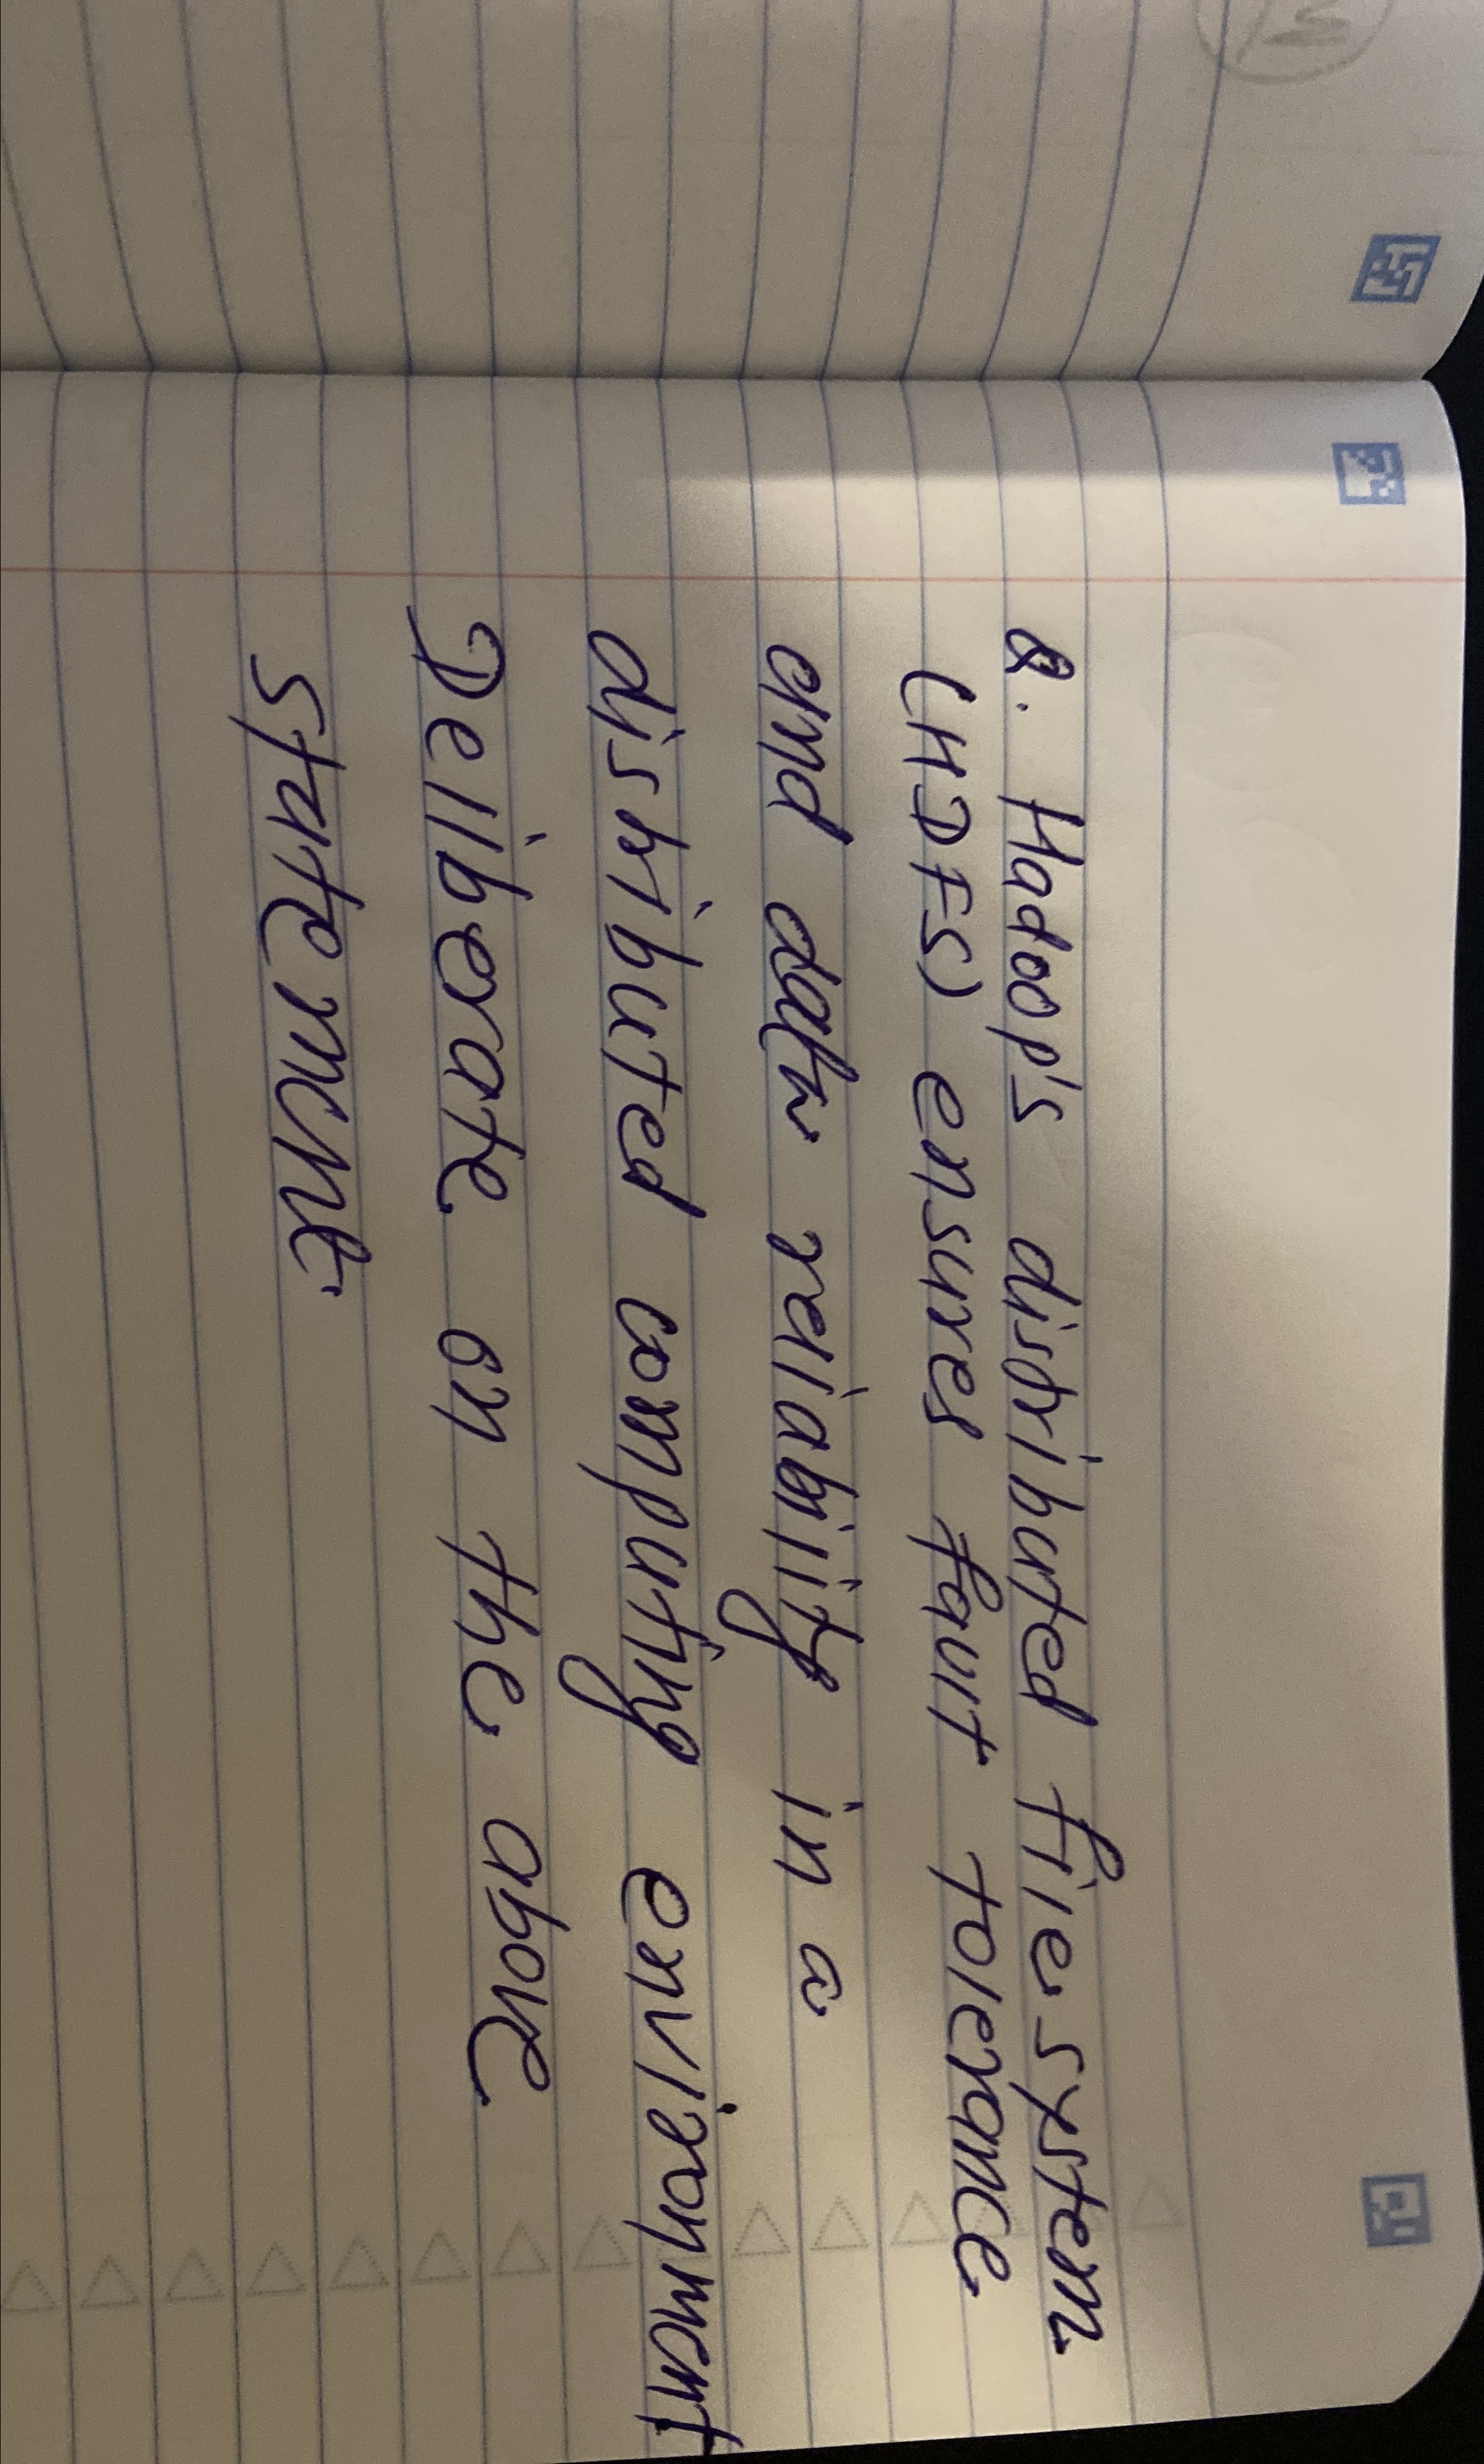 Q. Hadoop's distributed file system
(HDFS) ensures fault tolerance
and data reliability in a
distributed computing environment
Deliberate on the above
statement.